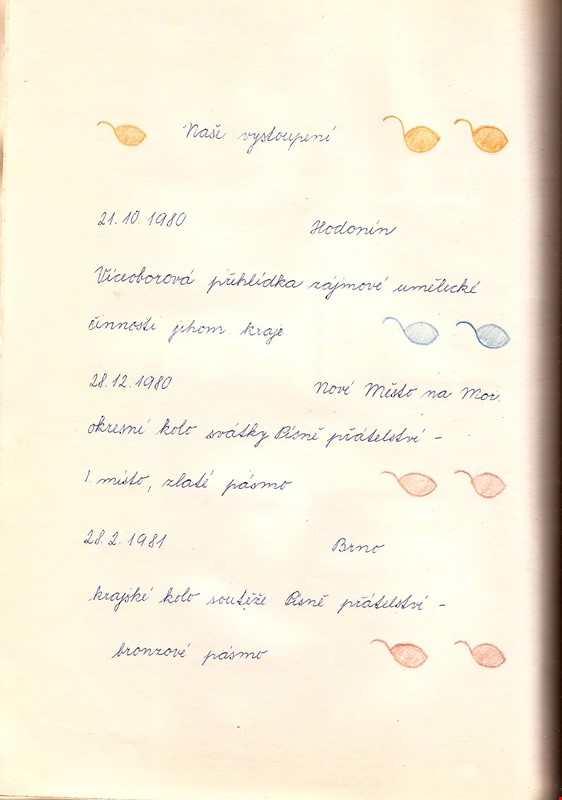 Naše vystoupení
21. 10. 1980 Hodonín
Víceoborová přehlídka zájmové umělecké
činnosti jihom kraje
28. 12. 1980 Nové Město na Mor.
okresní kolo svátky Písně přátelství -
1. místo, zlaté pásmo
28. 2. 1981 Brno
krajské kolo soutěže Písně přátelství -
bronzové pásmo